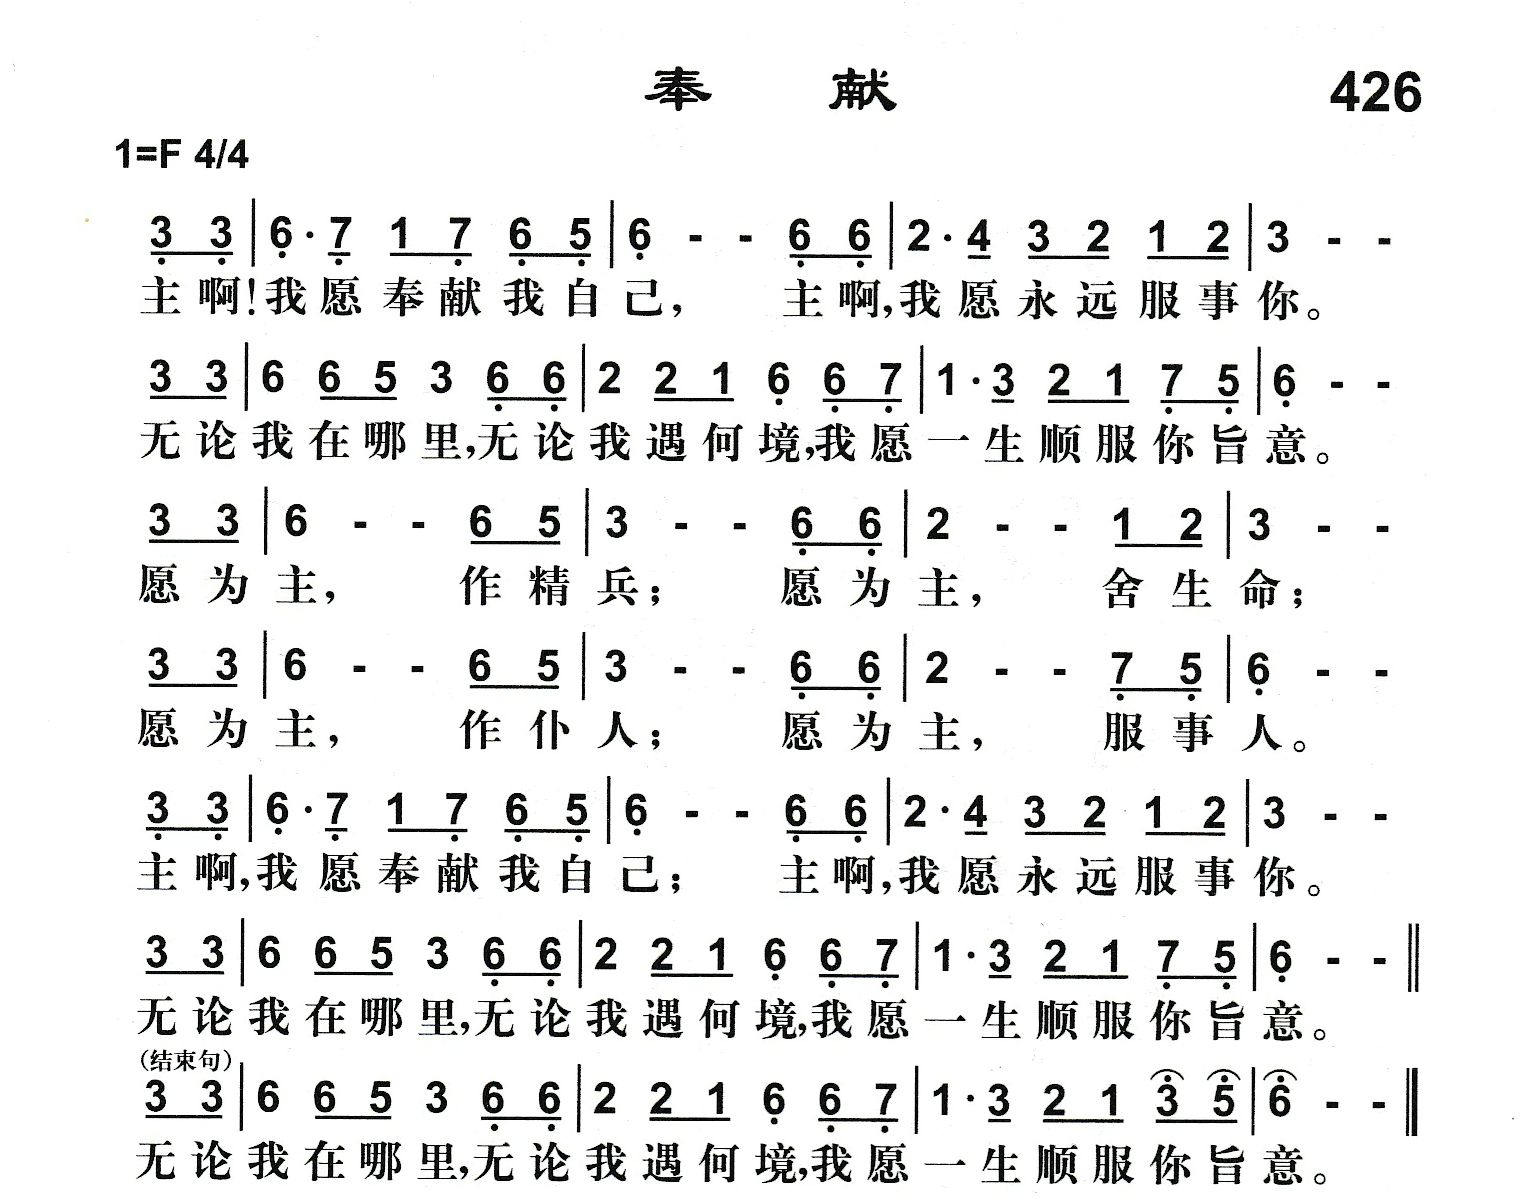 奉 献 426
1=F 4/4
3 3 | 6 · 7 1 7 6 5 | 6 - - 6 6 | 2 · 4 3 2 1 2 | 3 - -
主啊!我愿奉献我自己, 主啊,我愿永远服事你。
3 3 | 6 6 5 3 6 6 | 2 2 1 6 6 7 | 1 · 3 2 1 7 5 | 6 - -
无论我在哪里,无论我遇何境,我愿一生顺服你旨意。
3 3 | 6 - - 6 5 | 3 - - 6 6 | 2 - - 1 2 | 3 - -
愿为主, 作精兵; 愿为主, 舍生命;
3 3 | 6 - - 6 5 | 3 - - 6 6 | 2 - - 7 5 | 6 - -
愿为主, 作仆人; 愿为主, 服事人。
3 3 | 6 · 7 1 7 6 5 | 6 - - 6 6 | 2 · 4 3 2 1 2 | 3 - -
主啊,我愿奉献我自己; 主啊,我愿永远服事你。
3 3 | 6 6 5 3 6 6 | 2 2 1 6 6 7 | 1 · 3 2 1 7 5 | 6 - - ‖
无论我在哪里,无论我遇何境,我愿一生顺服你旨意。
(结束句)
3 3 | 6 6 5 3 6 6 | 2 2 1 6 6 7 | 1 · 3 2 1 3 5 | 6 - - ‖
无论我在哪里,无论我遇何境,我愿一生顺服你旨意。